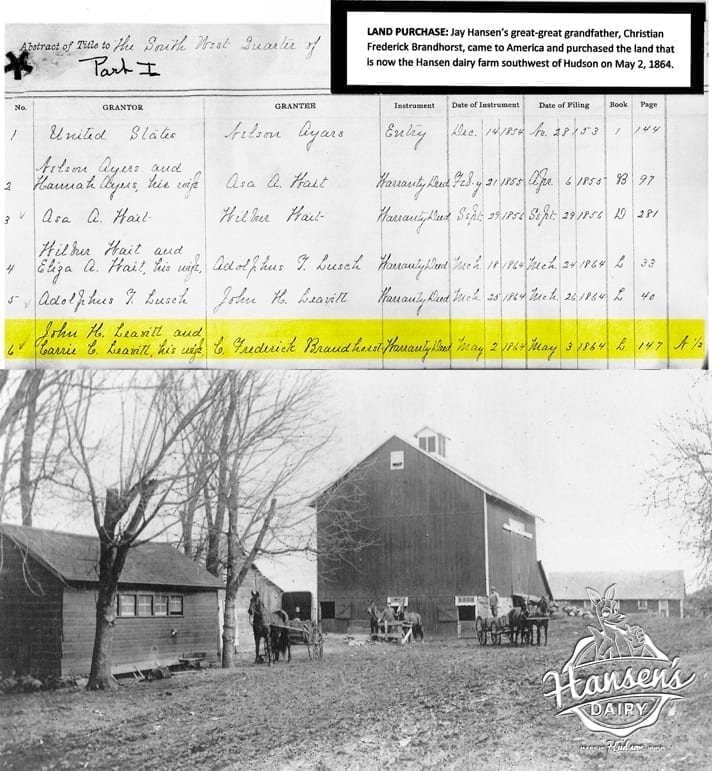 LAND PURCHASE: Jay Hansen's great-great grandfather, Christian
Frederick Brandhorst, came to America and purchased the land that
is now the Hansen dairy farm southwest of Hudson on May 2, 1864.
Abstract of Title to the South West Quarter of
Part I
No. GRANTOR GRANTEE Instrument Date of Instrument Date of Filing Book Page
1 United States Nelson Ayars Entry Dec. 14 1854 28 153 1 144
Nelson Ayers and
2 Hannah Ayers, his wife Asa A. Wait Warranty Deed Feb'y 21 1855 Apr 6 1855 B 97
3 Asa A. Wait Wilbur Wait Warranty Deed Sept. 29 1856 Sept. 29 1856 D 281
Wilbur Wait and
4 Eliza A. Wait, his wife, Adolphus T. Lusch Warranty Deed Mch. 18 1864 Mch. 24 1864 L 33
5 Adolphus T. Lusch John H. Leavitt Warranty Deed Mch. 25 1864 Mch. 26 1864 L 40
John H. Leavitt and
6 Carrie C. Leavitt, his wife, C. Frederick Brandhorst Warranty Deed May 2 1864 May 3 1864 L 147 N ½
Hansen's
DAIRY
Hudson